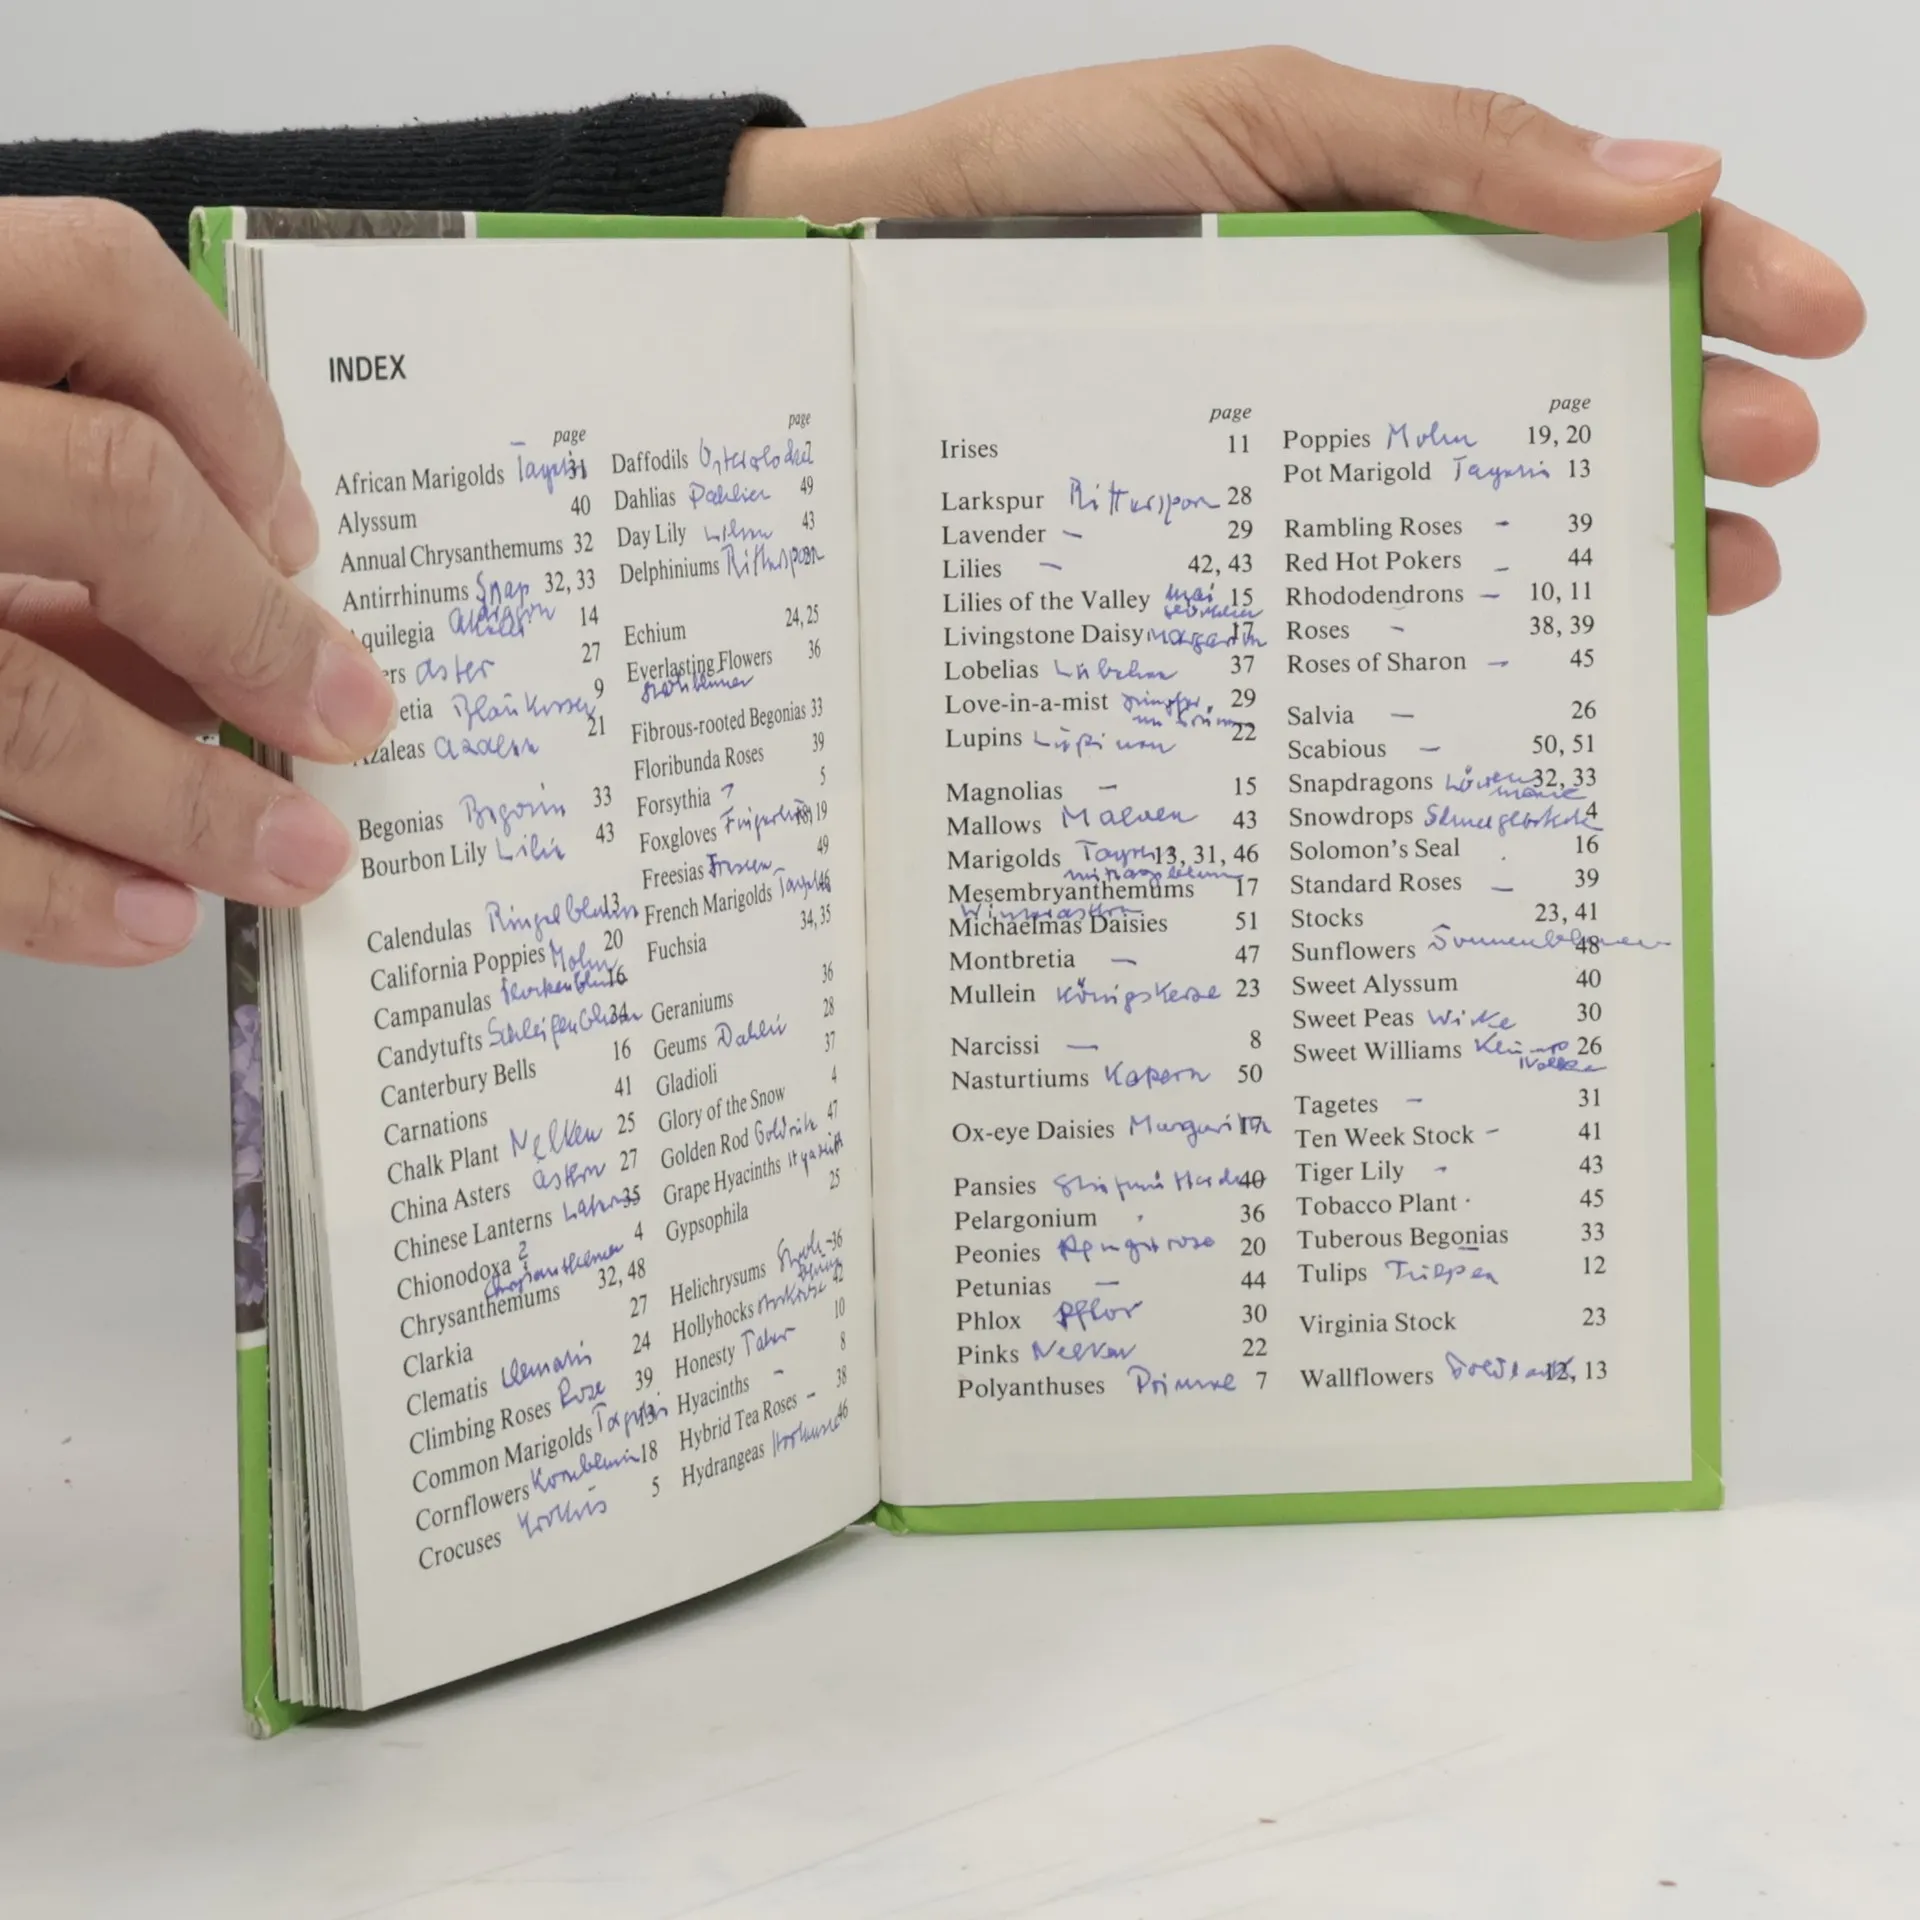 INDEX
page
African Marigolds Tagetis 31
Alyssum 40
Annual Chrysanthemums 32
Antirrhinums Snap 32, 33
dragon
quilegia 14
ers Aster 27
etia Blaukissen 9
Azaleas Azalen 21
Begonias Begonien 33
Bourbon Lily Lilie 43
Calendulas Ringelblumen 13
California Poppies Mohn 20
Campanulas Glockenblume 16
Candytufts Schleifenblumen 34
Canterbury Bells 16
Carnations 41
Chalk Plant Nelken 25
China Asters Astern 27
Chinese Lanterns 35
Chionodoxa ? 4
Chrysanthemums Chrysanthemen 32, 48
Clarkia 27
Clematis Clematis 24
Climbing Roses Rose 39
Common Marigolds Tagetis 13
Cornflowers Kornblumen 18
Crocuses Krokus 5
page
Daffodils Osterglocken 7
Dahlias Dahlien 49
Day Lily Lilien 43
Delphiniums Rittersporn
Echium 24, 25
Everlasting Flowers 36
Strohblumen
Fibrous-rooted Begonias 33
Floribunda Roses 39
Forsythia 5
Foxgloves Fingerhut 18, 19
Freesias Fresien 49
French Marigolds Tagetis 46
Fuchsia 34, 35
Geraniums 36
Geums Dahlie 28
Gladioli 37
Glory of the Snow 4
Golden Rod Goldrute 47
Grape Hyacinths Hyazinth
Gypsophila 25
Helichrysums Stroh- 36
blume
Hollyhocks Stockrose 42
Honesty Taler 10
Hyacinths – 8
Hybrid Tea Roses – 38
Hydrangeas Hortensie 46
page
Irises 11
Larkspur Rittersporn 28
Lavender – 29
Lilies – 42, 43
Lilies of the Valley Mai 15
Livingstone Daisy Margariten 17
Lobelias 37
Love-in-a-mist Jungfer 29
im Grünen
Lupins Lupinen 22
Magnolias – 15
Mallows Malven 43
Marigolds Tagetis 13, 31, 46
Mittagsblume
Mesembryanthemums 17
Winterastern
Michaelmas Daisies 51
Montbretia – 47
Mullein Königskerze 23
Narcissi – 8
Nasturtiums Kapern 50
Ox-eye Daisies Margariten 17
Pansies 40
Pelargonium 36
Peonies Pfingstrose 20
Petunias – 44
Phlox Pflox 30
Pinks Nelken 22
Polyanthuses Primel 7
page
Poppies Mohn 19, 20
Pot Marigold Tagetis 13
Rambling Roses – 39
Red Hot Pokers – 44
Rhododendrons – 10, 11
Roses – 38, 39
Roses of Sharon – 45
Salvia – 26
Scabious – 50, 51
Snapdragons Löwen 32, 33
Snowdrops Schneeglöckchen 4
Solomon's Seal 16
Standard Roses – 39
Stocks 23, 41
Sunflowers Sonnenblumen 48
Sweet Alyssum 40
Sweet Peas Wicke 30
Sweet Williams 26
Nelke
Tagetes – 31
Ten Week Stock – 41
Tiger Lily – 43
Tobacco Plant 45
Tuberous Begonias 33
Tulips Tulpen 12
Virginia Stock 23
Wallflowers Goldlack 12, 13